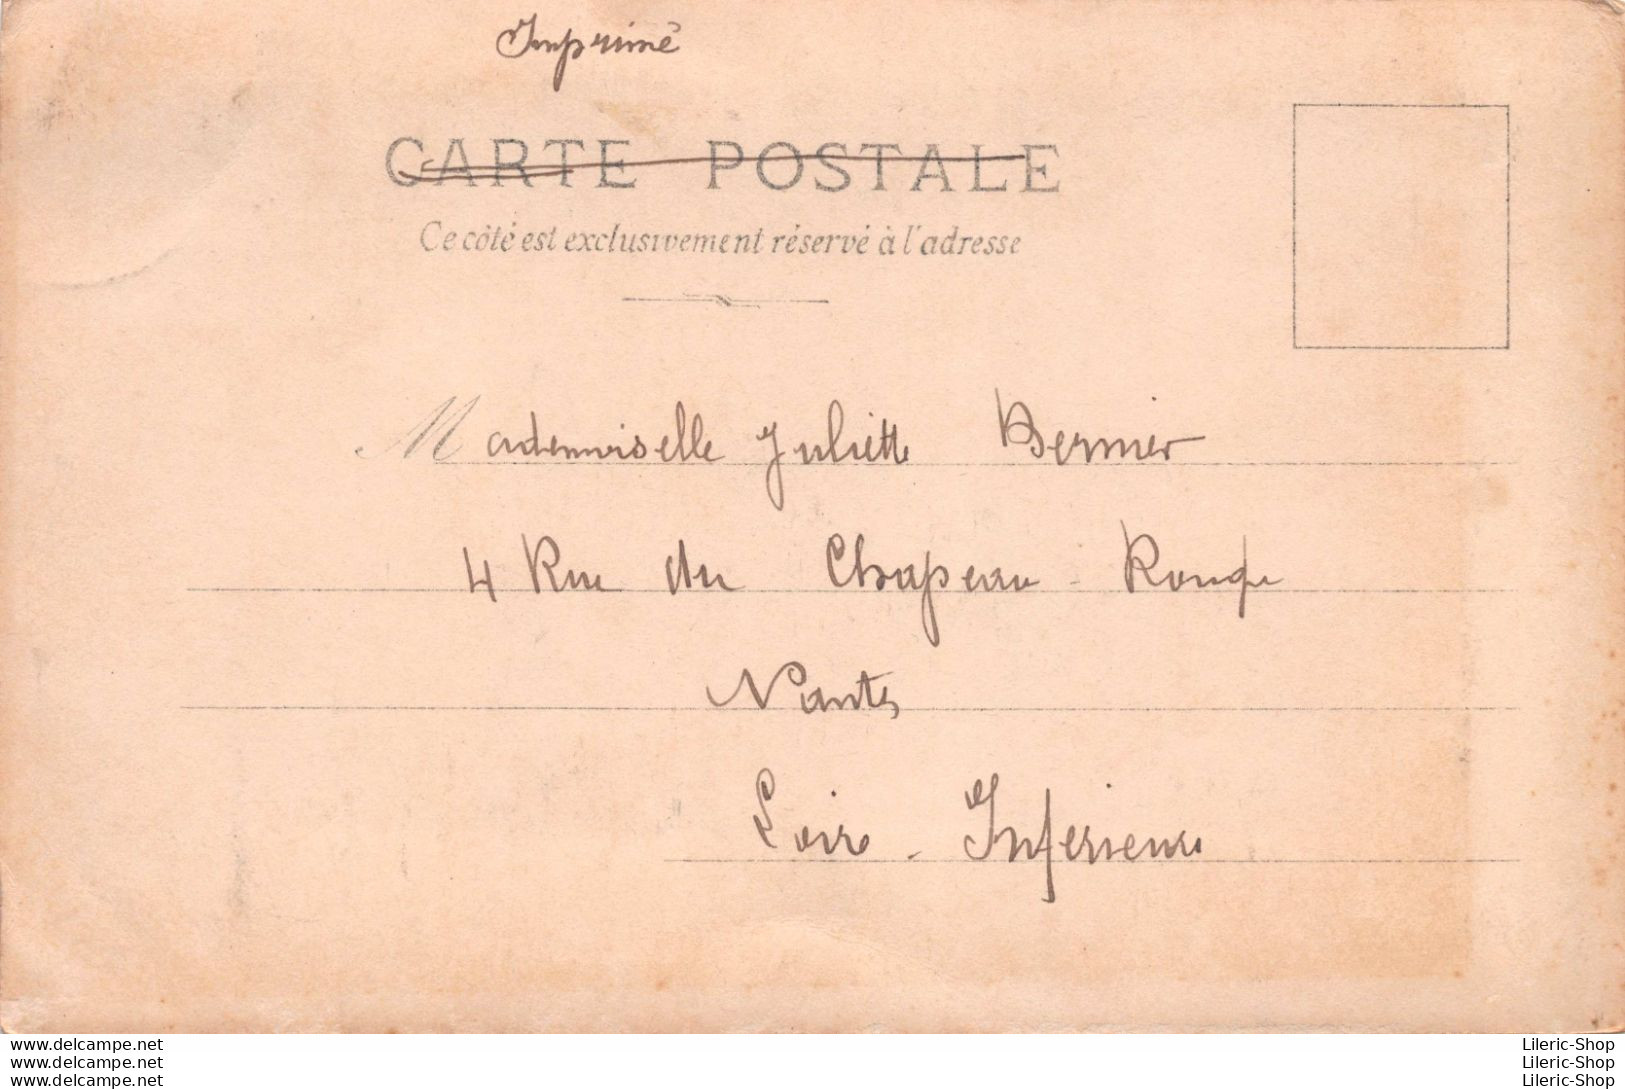 Imprimé
CARTE POSTALE
Ce côté est exclusivement réservé à l'adresse
Mademoiselle Juliette Bernier
4 Rue du Chapeau - Rouge
Nantes
Loire - Inférieure
www.delcampe.net
www.delcampe.net
www.delcampe.net
Lileric-Shop
Lileric-Shop
Lileric-Shop